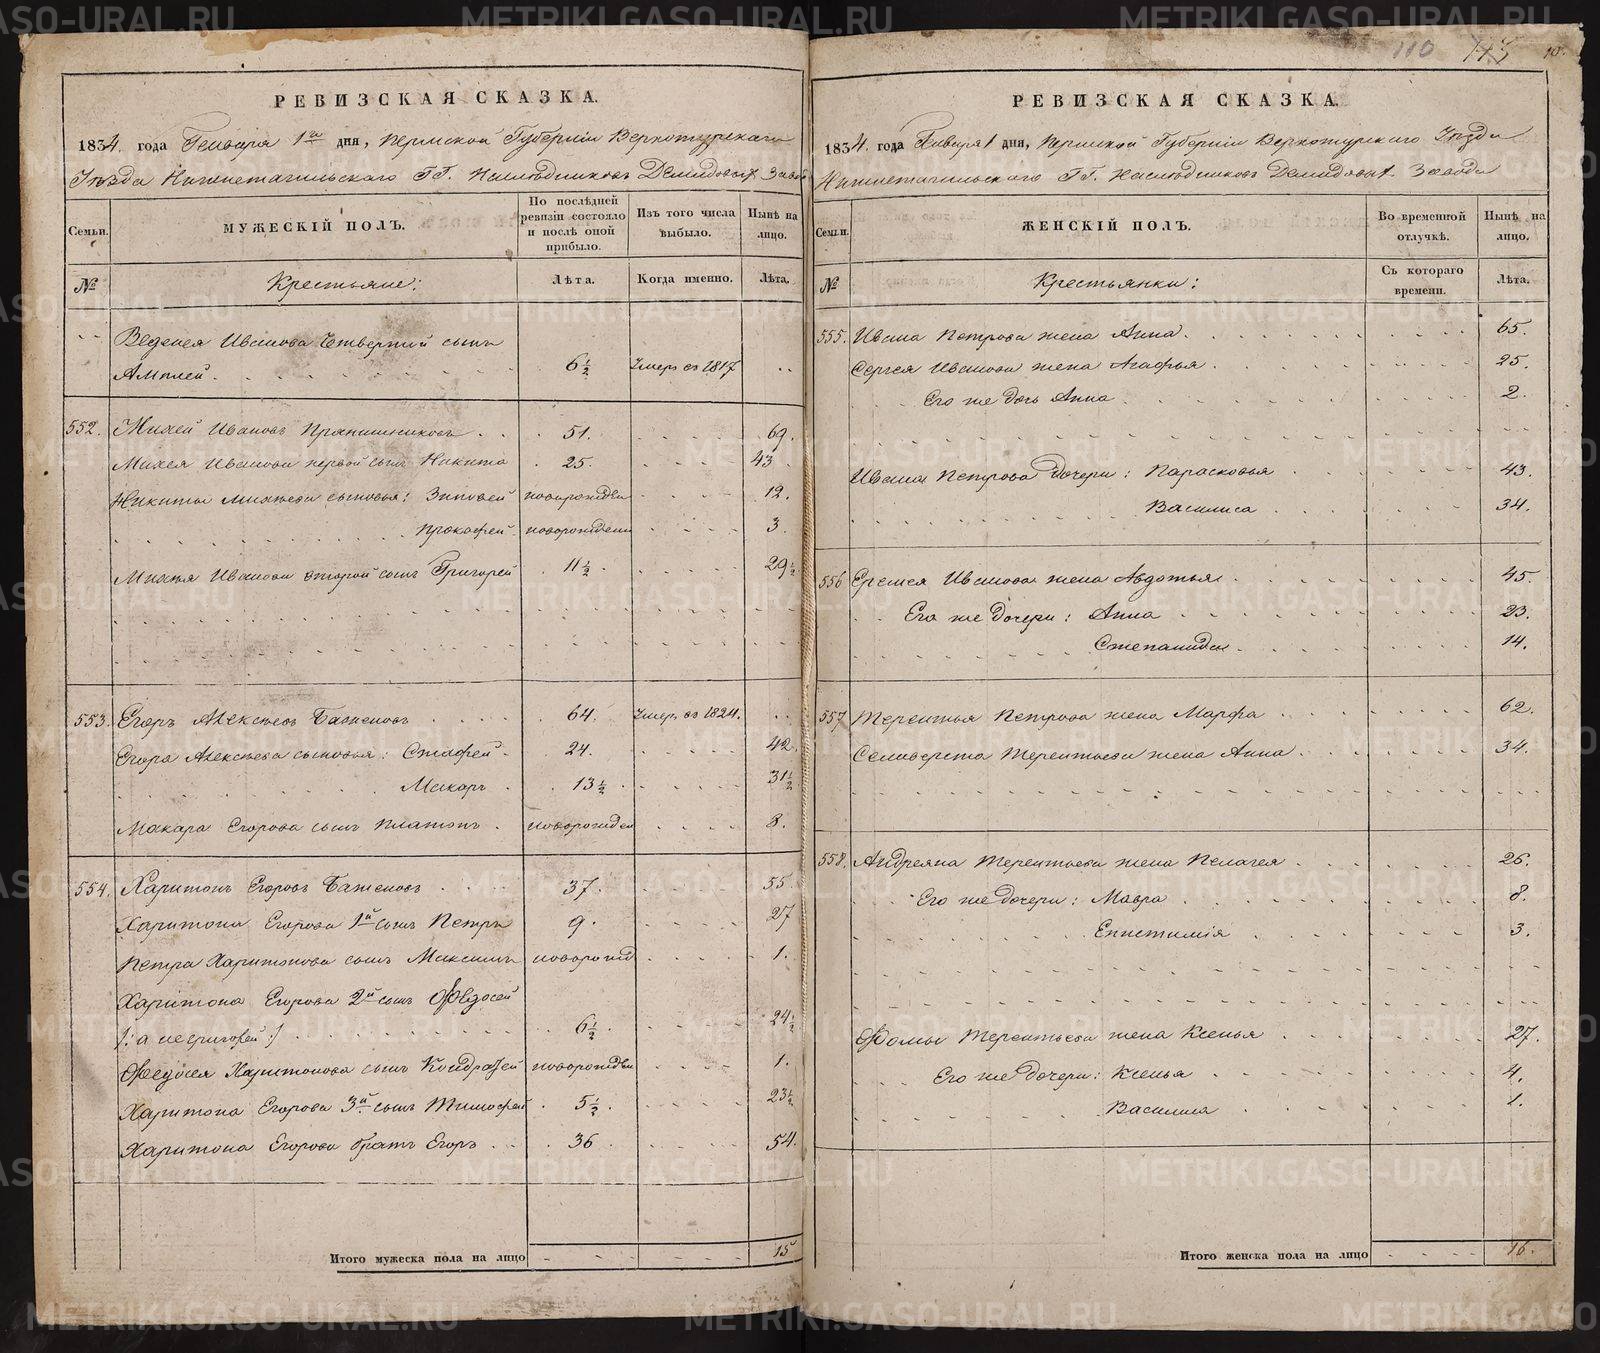 РЕВИЗСКАЯ СКАЗКА.
1834. года Генваря 1го дня, Пермской Губернии Верхотурскаго
Уѣзда Нижнетагильскаго ГГ. Наслѣдниковъ Демидовых Завода
Семьи.
МУЖЕСКІЙ ПОЛЪ.
По послѣдней ревизіи состояло и послѣ оной прибыло.
Изъ того числа выбыло.
Нынѣ на лицо.
№
Крестьяне:
Лѣта.
Когда именно.
Лѣта.
Иванова Четвертой сынъ
6½ Умеръ въ 1817
552. Михей Ивановъ 51. 69.
Михея Иванова первой сынъ Никита 25. 43
Никиты Михѣева сыновья: Зиновей новорожден 12.
Прокофей новорожденн 3.
Михѣя Иванова второй сынъ Григорей 11½ 29½
553. Егоръ Алексѣевъ Баженовъ 64. Умеръ въ 1824.
Егора Алексѣева сыновья: Стафей 24. 42.
Макаръ 13½ 31½
Макара Егорова сынъ Платонъ новорожден 8.
554. Харитонъ Егоровъ Баженовъ 37. 55.
Харитона Егорова 1й сынъ Петръ 9. 27
Петра Харитонова сынъ Максимъ новорожд 1.
Харитона Егорова 2й сынъ Ѳедосей
/: а не Григорей :/ 6½ 24½
Ѳедосея Харитонова сынъ Кондратей новорожден 1.
Харитона Егорова 3й сынъ Тимофей 5½ 23½
Харитона Егорова братъ Егоръ 36 54.
Итого мужеска пола на лицо 15
110
10.
РЕВИЗСКАЯ СКАЗКА.
1834. года Января 1 дня, Пермской Губерніи Верхотурскаго Уѣзда
Нижнетагильскаго ГГ. Наслѣдниковъ Демидовых Завода
Семьи.
ЖЕНСКІЙ ПОЛЪ.
Во временной отлучкѣ.
Нынѣ на лицо.
№
Крестьянки:
Съ котораго времени.
Лѣта.
555. Ивана Петрова жена Анна 65.
Сергея Иванова жена Агафья 25.
Его же дочь Анна 2.
Ивана Петрова дочери: Парасковья 43.
Василиса 34.
556 Еремея Иванова жена Авдотья 45.
Его же дочери: Анна 23.
Степанида 14.
557 Терентья Петрова жена Марфа 62.
Селиверста Терентьева жена Анна 34.
558. Андреяна Терентьева жена Пелагея 26.
Его же дочери: Мавра 8.
Епистимія 3.
Фомы Терентьева жена Ксенья 27.
Его же дочери: Ксенья 4.
Василиса 1.
Итого женска пола на лицо 16.
METRIKI.GASO-URAL.RU